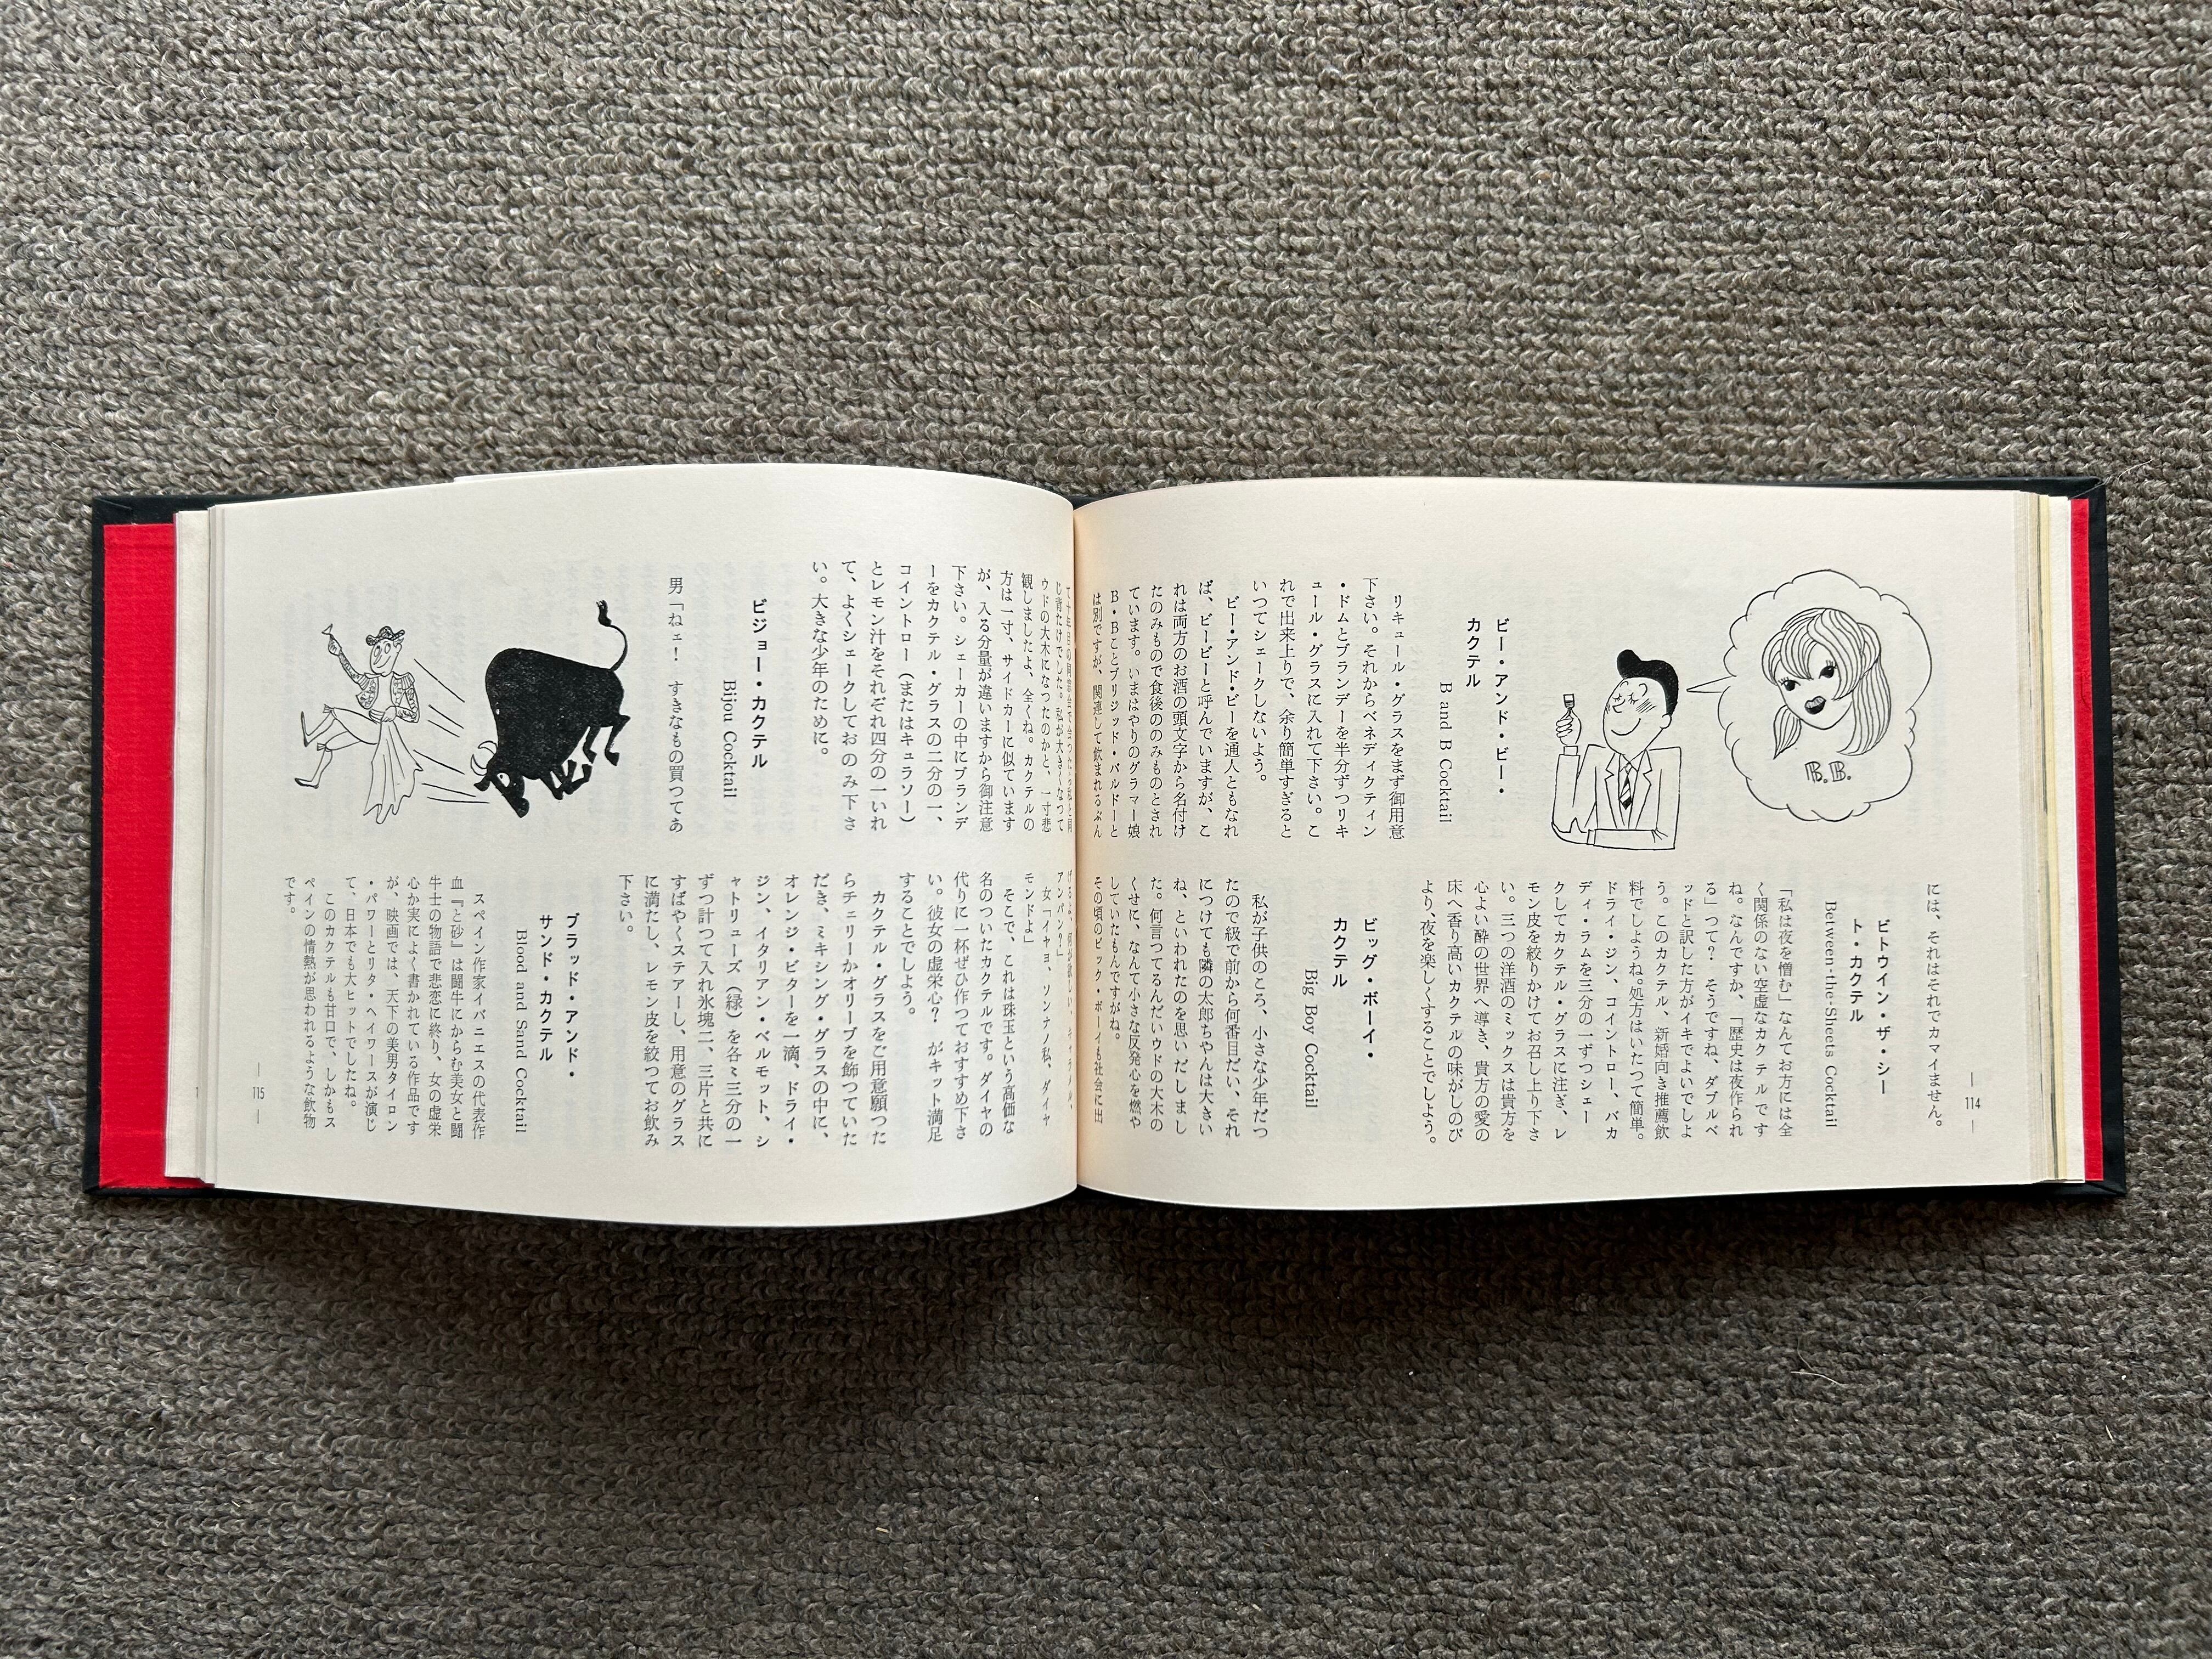 B.B.
ビー・アンド・ビー・
カクテル
B and B Cocktail
リキュール・グラスをまず御用意
下さい。それからベネディクティン
・ドムとブランデーを半分ずつリキ
ュール・グラスに入れて下さい。こ
れで出来上りで、余り簡単すぎると
いつてシェークしないよう。
ビー・アンド・ビーを通人ともなれ
ば、ビービーと呼んでいますが、こ
れは両方のお酒の頭文字から名付け
たのみもので食後ののみものとされ
ています。いまはやりのグラマー娘
B・Bことブリジッド・バルドーと
は別ですが、関連して飲まれるぶん
には、それはそれでカマイません。
ビトウイン・ザ・シー
ト・カクテル
Between-the-Sheets Cocktail
「私は夜を憎む」なんてお方には全
く関係のない空虚なカクテルです
ね。なんですか、「歴史は夜作られ
る」つて? そうですね、ダブルベ
ッドと訳した方がイキでよいでしょ
う。このカクテル、新婚向き推薦飲
料でしようね。処方はいたつて簡単。
ドライ・ジン、コイントロー、バカ
ディ・ラムを三分の一ずつシェー
クしてカクテル・グラスに注ぎ、レ
モン皮を絞りかけてお召し上り下さ
い。三つの洋酒のミックスは貴方を
心よい酔の世界へ導き、貴方の愛の
床へ香り高いカクテルの味がしのび
より、夜を楽しくすることでしよう。
ビッグ・ボーイ・
カクテル
Big Boy Cocktail
私が子供のころ、小さな少年だつ
たので級で前から何番目だい、それ
につけても隣の太郎ちやんは大きい
ね、といわれたのを思いだしまし
た。何言つてるんだいウドの大木の
くせに、なんて小さな反発心を燃や
していたもんですがね。
その頃のビック・ボーイも社会に出
114
て十年目の同窓会で会つたら私と同
じ背たけでした。私が大きくなつて
ウドの大木になつたのかと、一寸悲
観しましたよ、全くね。カクテルの
方は一寸、サイドカーに似ています
が、入る分量が違いますから御注意
下さい。シェーカーの中にブランデ
ーをカクテル・グラスの二分の一、
コイントロー(またはキュラソー)
とレモン汁をそれぞれ四分の一いれ
て、よくシェークしておのみ下さ
い。大きな少年のために。
ビジョー・カクテル
Bijou Cocktail
男「ねェ! すきなもの買つてあ
アンパン?」
女「イヤョ、ソンナノ私、ダイヤ
モンドよ」
そこで、これは珠玉という高価な
名のついたカクテルです。ダイヤの
代りに一杯ぜひ作つておすすめ下さ
い。彼女の虚栄心? がキット満足
することでしよう。
カクテル・グラスをご用意願つた
らチェリーかオリーブを飾つていた
だき、ミキシング・グラスの中に、
オレンジ・ビターを一滴、ドライ・
ジン、イタリアン・ベルモット、シ
ャトリューズ(緑)を各々三分の一
ずつ計つて入れ氷塊二、三片と共に
すばやくステアーし、用意のグラス
に満たし、レモン皮を絞つてお飲み
下さい。
ブラッド・アンド・
サンド・カクテル
Blood and Sand Cocktail
スペイン作家イバニエスの代表作
血『と砂』は闘牛にからむ美女と闘
牛士の物語で悲恋に終り、女の虚栄
心か実によく書かれている作品です
が、映画では、天下の美男タイロン
・パワーとリタ・ヘイワースが演じ
て、日本でも大ヒットでしたね。
このカクテルも甘口で、しかもス
ペインの情熱が思われるような飲物
です。
115